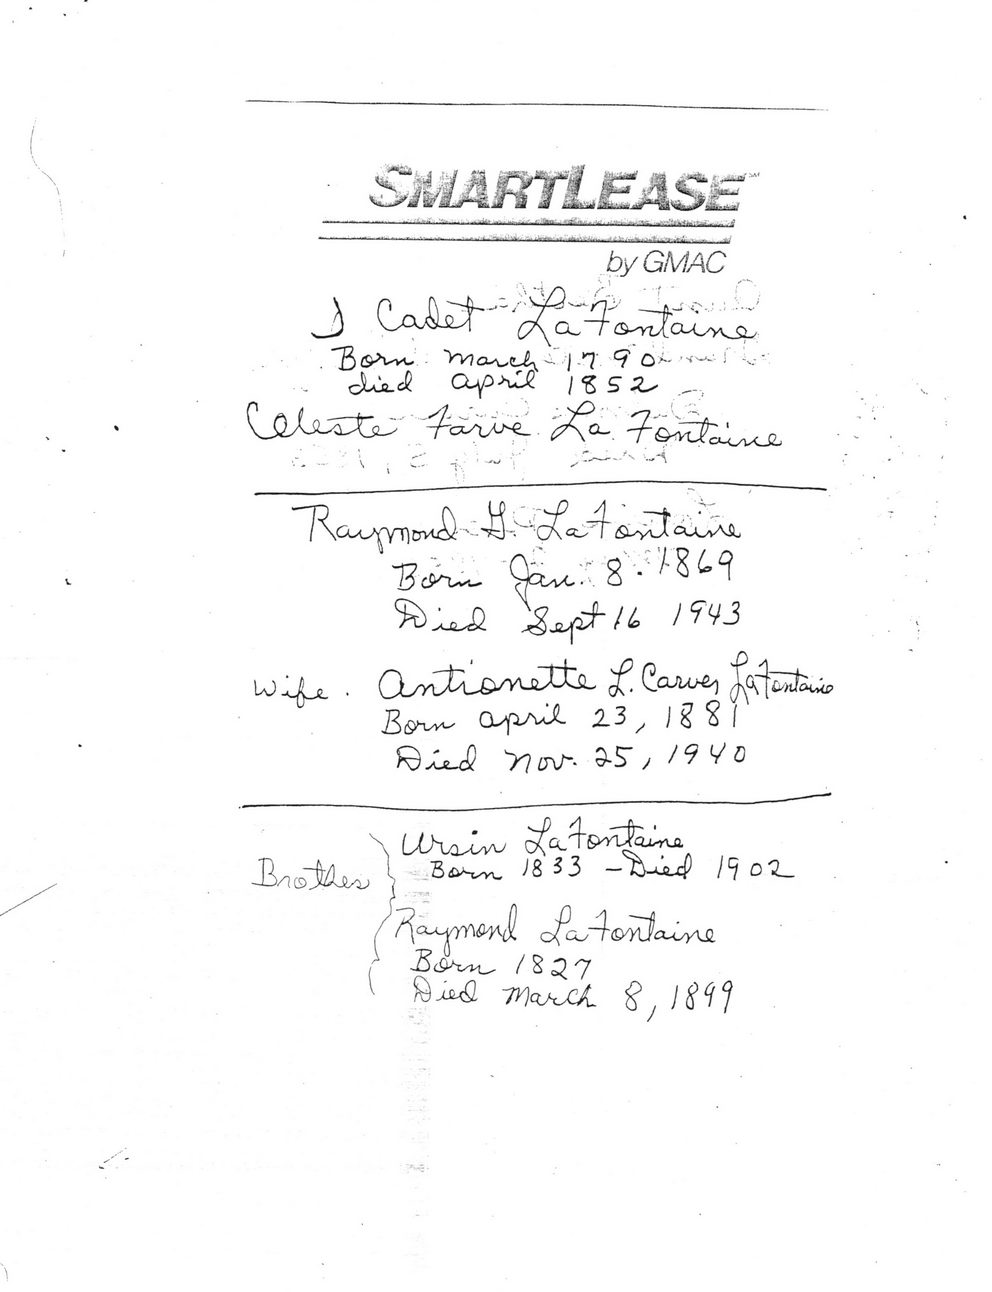 SMARTLEASE℠
by GMAC
J Cadet LaFontaine
Born march 1790
died april 1852
Celeste Farve La Fontaine
Raymond G. LaFontaine
Born Jan. 8. 1869
Died Sept 16 1943
Wife. Antionette L. Carver LaFontaine
Born april 23, 1881
Died Nov. 25, 1940
Ursin LaFontaine
Born 1833 - Died 1902
Brother
Raymond LaFontaine
Born 1827
Died March 8, 1899